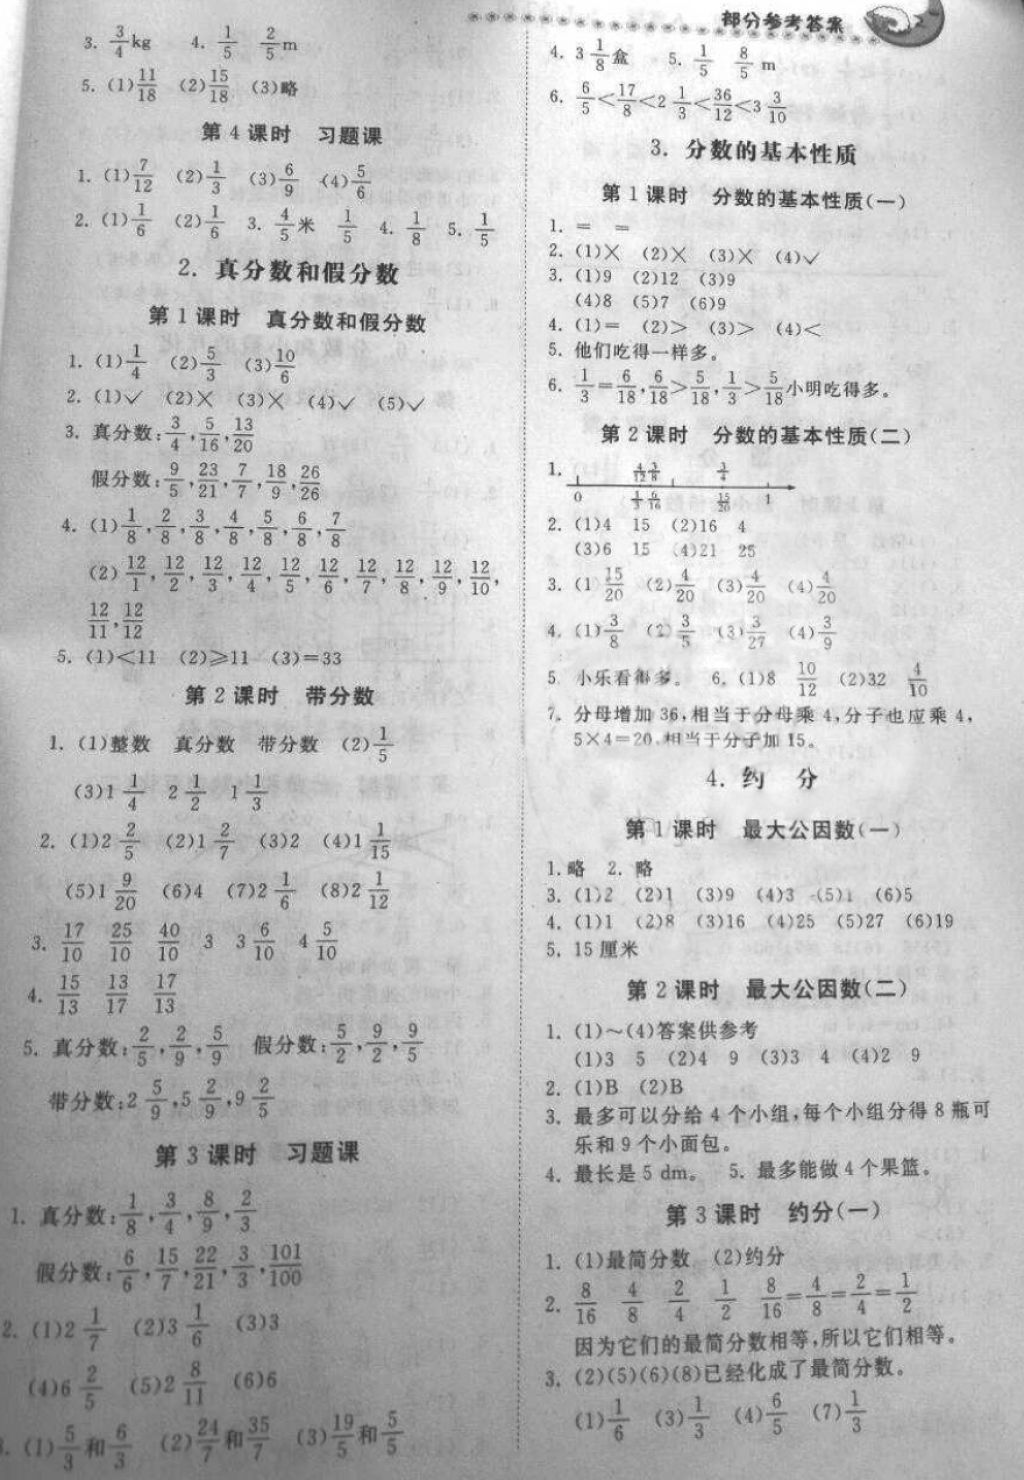 部分参考答案
3. 3/4 kg 4. 1/5 2/5 m
5. (1) 11/18 (2) 15/18 (3)略
第4课时 习题课
1. (1) 7/12 (2) 1/3 (3) 6/9 (4) 5/6
2. (1) 1/6 (2) 1/6 3. 4/5 米 1/5 4. 1/8 5. 1/5
2. 真分数和假分数
第1课时 真分数和假分数
1. (1) 1/4 (2) 5/3 (3) 10/6
2. (1)✓ (2)× (3)× (4)✓ (5)✓
3. 真分数: 3/4, 5/16, 13/20
假分数: 9/5, 23/21, 7/7, 18/9, 26/26
4. (1) 1/8, 2/8, 3/8, 4/8, 5/8, 6/8, 7/8
(2) 12/1, 12/2, 12/3, 12/4, 12/5, 12/6, 12/7, 12/8, 12/9, 12/10,
12/11, 12/12
5. (1)<11 (2)≥11 (3)=33
第2课时 带分数
1. (1)整数 真分数 带分数 (2) 1/5
(3) 1 1/4 2 1/2 1 1/3
2. (1) 2 2/5 (2) 1 2/7 (3) 2 (4) 1 1/15
(5) 1 9/20 (6) 4 (7) 2 1/6 (8) 2 1/12
3. 17/10 25/10 40/10 3 3 6/10 4 5/10
4. 15/13 13/17 17/13
5. 真分数: 2/5, 2/9, 5/9 假分数: 5/2, 9/2, 9/5
带分数: 2 5/9, 5 2/9, 9 2/5
第3课时 习题课
1. 真分数: 1/8, 3/4, 8/9, 2/3
假分数: 6/6, 15/7, 22/21, 3/3, 101/100
2. (1) 2 1/7 (2) 3 1/6 (3) 3
(4) 6 2/5 (5) 2 8/11 (6) 6
(1) 5/3 和 6/3 (2) 24/7 和 35/7 (3) 19/5 和 5/5
4. 3 1/8 盒 5. 1/5 8/5 m
6. 6/5 < 17/8 < 2 1/3 < 36/12 < 3 3/10
3. 分数的基本性质
第1课时 分数的基本性质(一)
1. = =
2. (1)× (2)× (3)× (4)✓
3. (1)9 (2)12 (3)9
(4)8 (5)7 (6)9
4. (1)= (2)> (3)> (4)<
5. 他们吃得一样多。
6. 1/3 = 6/18, 6/18 > 5/18, 1/3 > 5/18 小明吃得多。
第2课时 分数的基本性质(二)
1. 4/12 3/8 3/4
0 1/3 6/16 15/20 1
2. (1)4 15 (2)16 4
(3)6 15 (4)21 25
3. (1 15/20 (2) 4/20 (3) 4/20 (4) 4/20
4. (1) 3/8 (2) 3/5 (3) 3/27 (4) 3/9
5 小乐看得多。 6. (1)8 10/12 (2)32 4/10
7. 分母增加 36,相当于分母乘 4,分子也应乘 4,
5×4=20,相当于分子加 15。
4. 约 分
第1课时 最大公因数(一)
1. 略 2. 略
3. (1)2 (2)1 (3)9 (4)3 (5)1 (6)5
4. (1)1 (2)8 (3)16 (4)25 (5)27 (6)19
5. 15 厘米
第2课时 最大公因数(二)
1. (1)~(4)答案供参考
(1)3 5 (2)4 9 (3)3 4 (4)2 9
2. (1)B (2)B
3. 最多可以分给 4 个小组,每个小组分得 8 瓶可
乐和 9 个小面包。
4. 最长是 5 dm。 5. 最多能做 4 个果篮。
第3课时 约分(一)
1. (1)最简分数 (2)约分
2. 8/16 4/8 2/4 1/2 8/16 = 4/8 = 2/4 = 1/2
因为它们的最简分数相等,所以它们相等。
3. (2)(5)(6)(8)已经化成了最简分数。
(1) 1/6 (3) 1/3 (4) 6/5 (7) 1/3